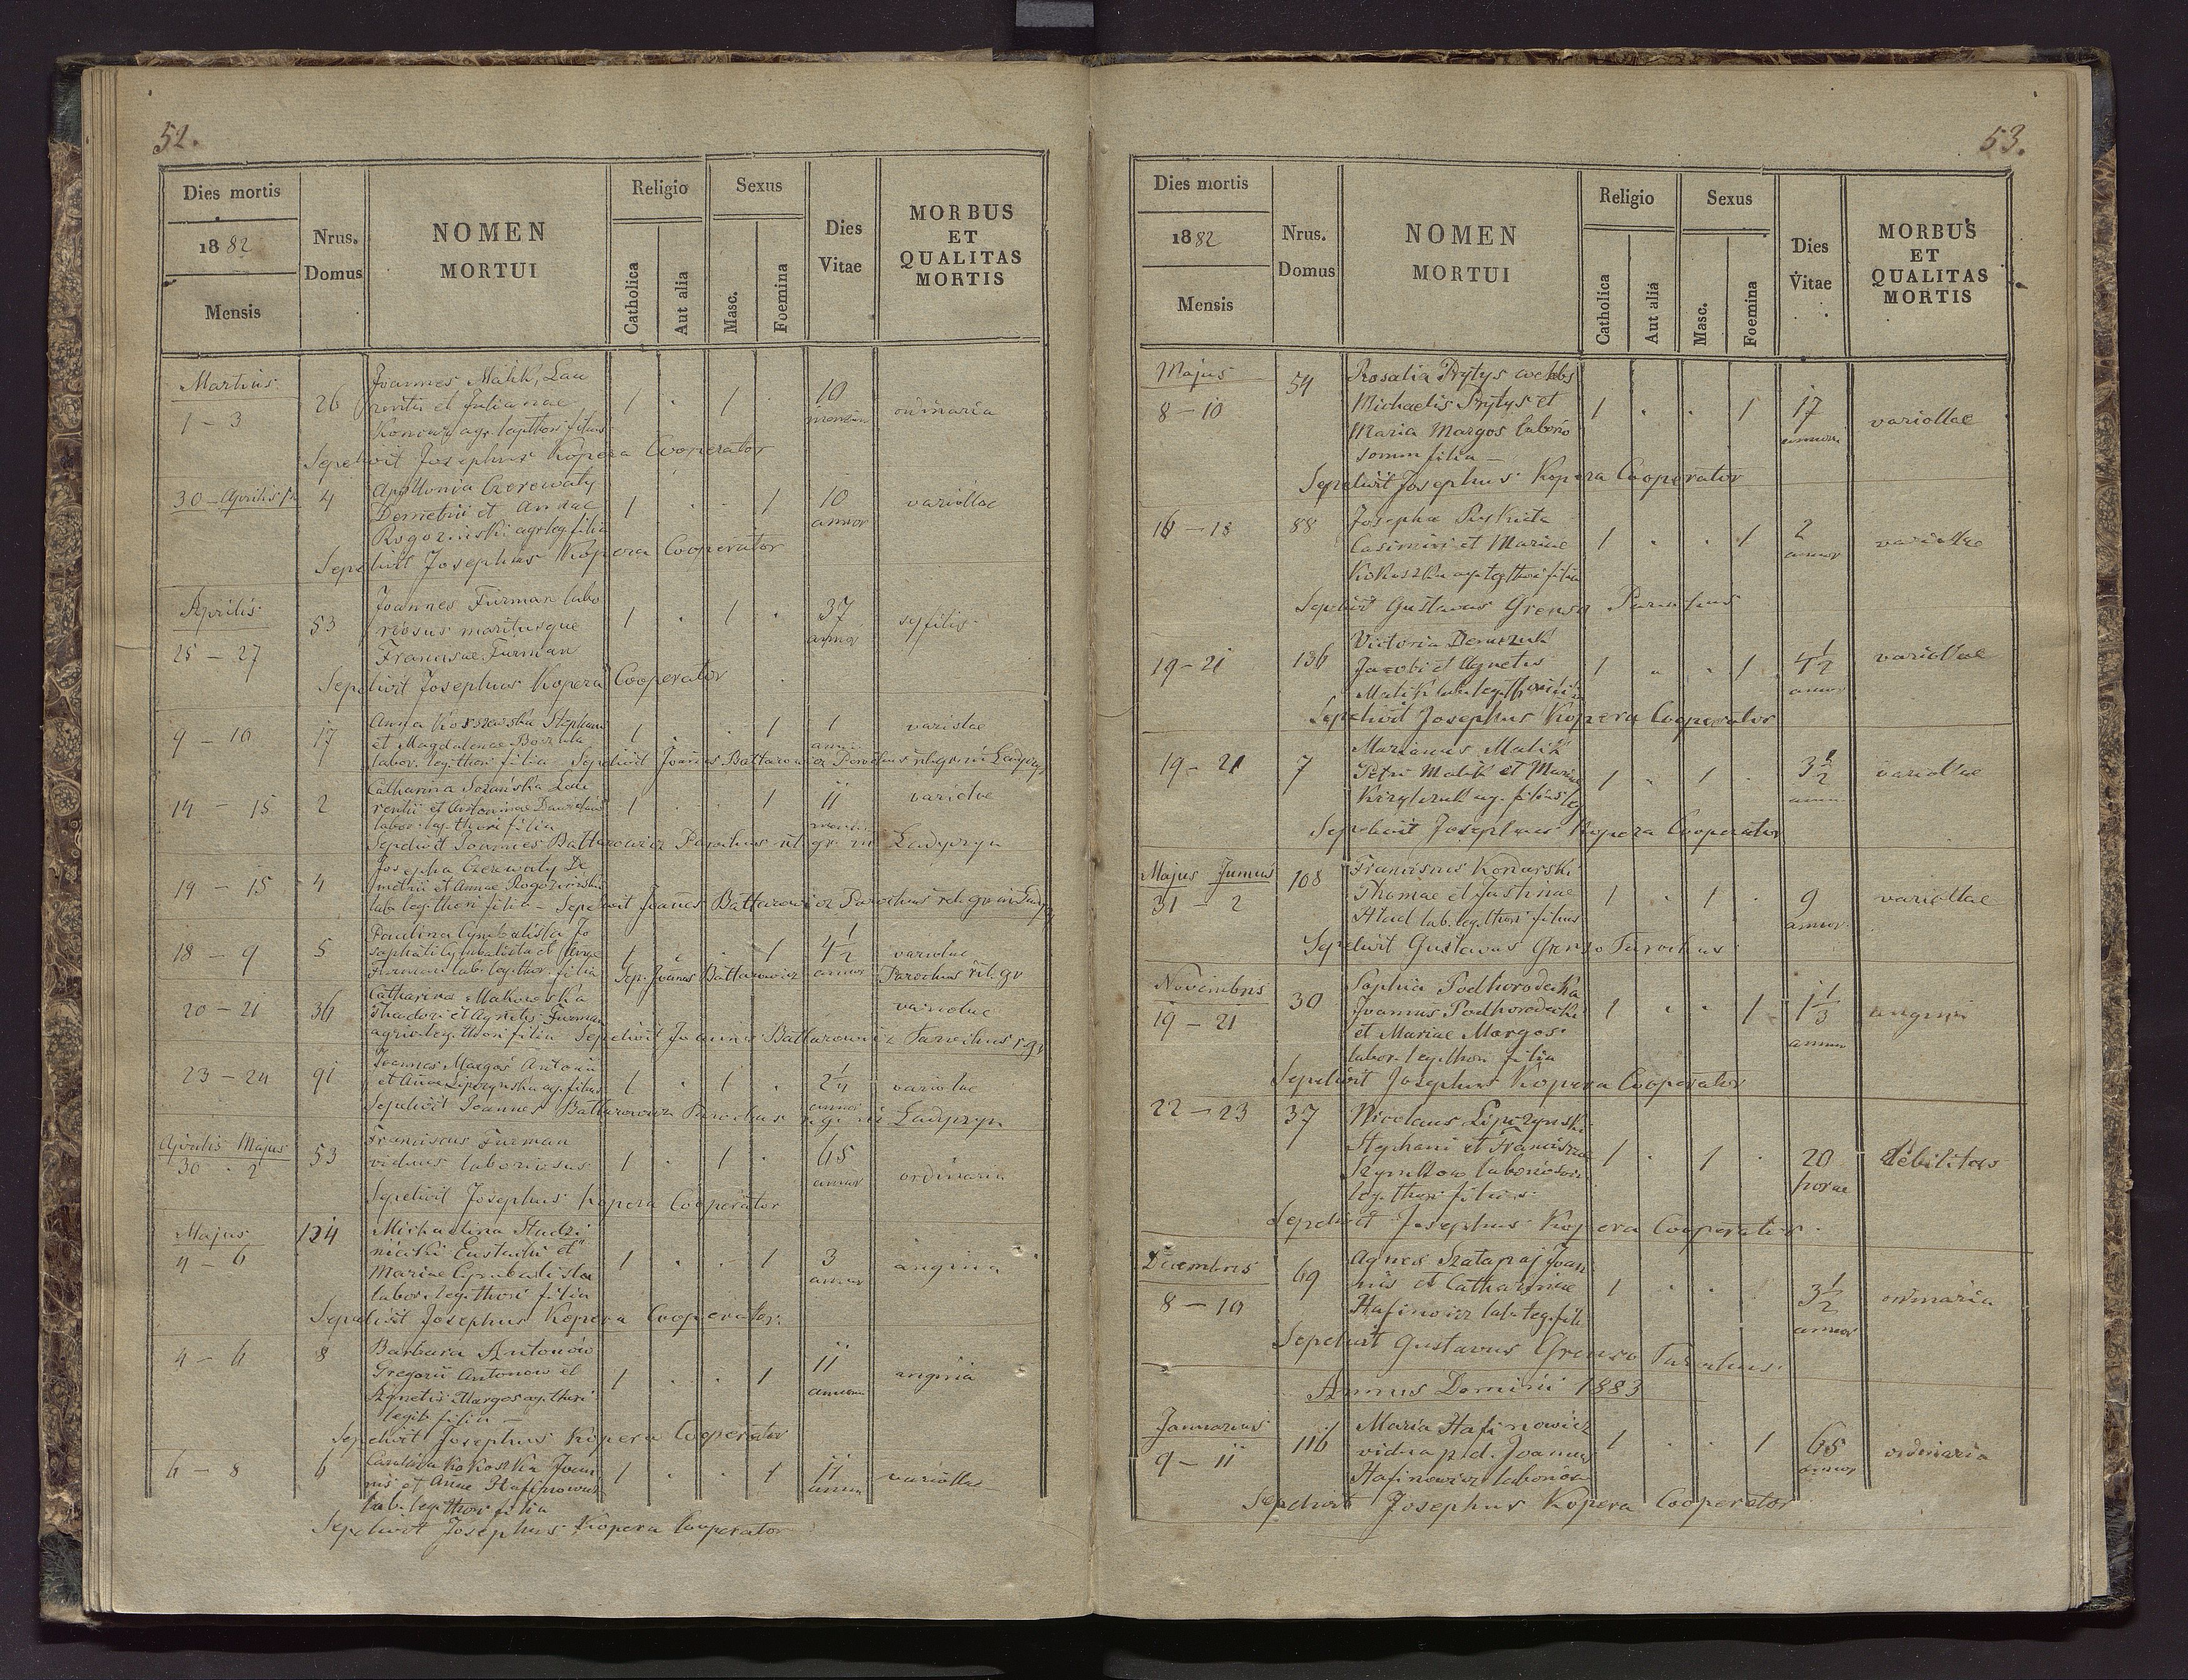 52.
Dies mortis
1882
Mensis
Nrus. Domus
NOMEN
MORTUI
Religio
Catholica
Aut alia
Sexus
Masc.
Foemina
Dies
Vitae
MORBUS
ET
QUALITAS
MORTIS
Martius
1 – 3
26
Joannes Malik, Lau
rentii et Julianae
agr. legthori filius
1 . 1 .
10
mensium
ordinaria
Sepelivit Josephus Kopera Cooperator
30 – Aprilis
4
Apollonia Czerewaty
Demetrii et Annae
Rogozinski agr leg filia
1 . . 1
10
annor
variollae
Sepelivit Josephus Kopera Cooperator
Aprilis
25 – 27
53
Joannes Furman labo
riosus maritusque
Franciscae Furman
1 . 1 .
37
annor
syfilis
Sepelivit Josephus Kopera Cooperator
9 – 10
17
Anna Stephani
et Magdalenae
labor. legthori filia – Sepelivit Joannes Battarowicz Parochus rit. gr. in Ladyczyn
1 . . 1
1
variolae
14 – 15
2
Catharina Lau
rentii et Antoninae
labor. leg. thori filia
1 . . 1
11
variolae
Sepelivit Joannes Battarowicz Parochus rit. gr. in Ladyczyn
14 – 15
4
Josepha Czerewaty De
metrii et Annae Rogozinski
lab. leg. thori filia – Sepelivit Joannes Battarowicz Parochus rit. gr. in
18 – 9
5
Paulina Cymbalista Jo
saphati Cymbalista et
Furman lab. leg. thor. filia
1 . . 1
4 1/2
annor
variolae
Sep. Joannes Battarowicz Parochus rit. gr
20 – 21
36
Catharina Makowska
Theodori et Agnetis Furman
agric. leg. thori filia Sepelivit Joannes Battarowicz Parochus r. gr
variolae
23 – 24
91
Joannes Margos Antonii
et Anna Lipczynska ag. filius
1 . 1 .
2 1/4
annor
variolae
Sepelivit Joannes Battarowicz Parochus r. g. in Ladyczyn
Aprilis Majus
30 . 2
53
Franciscus Furman
viduus laboriosus
1 . 1 .
65
annor
ordinaria
Sepelivit Josephus Kopera Cooperator
Majus
4 – 6
124
Michaelina Studzi
nicski Eustachii et
Mariae Cymbalista
labor. leg. thori filia
1 . . 1
3
annor
angina
Sepelivit Josephus Kopera Cooperator.
4 – 6
8
Barbara Antonow
Gregorii Antonow et
Agnetis Margos ag. thori
legit filia –
1 . . 1
11
annorum
angina
Sepelivit Josephus Kopera Cooperator
6 – 8
6
Carolina Kokoszka Joan
nis et Annae Hafinowicz
lab. leg thori filia
1 . . 1
11
annor
variollae
Sepelivit Josephus Kopera Cooperator
53.
Dies mortis
1882
Mensis
Nrus. Domus
NOMEN
MORTUI
Religio
Catholica
Aut alia
Sexus
Masc.
Foemina
Dies
Vitae
MORBUS
ET
QUALITAS
MORTIS
Majus
8 – 10
54
Rosalia Prytys coelebs
Michaelis Prytys et
Maria Margos laborio
sorum filia –
1 . . 1
17
annorum
variollae
Sepelivit Josephus Kopera Cooperator
16 – 18
88
Josepha
Casimiri et Mariae
Kokoszka agr leg thori filia
1 . . 1
2
annor
variollae
Sepelivit Gustavus Grenso Parochus
19 – 21
136
Victoria Demczuk
Jacobi et Agnetis
Malik lab. leg. thori filia
1 . . 1
4 1/2
annor
variollae
Sepelivit Josephus Kopera Cooperator
19 – 21
7
Marianus Malik
Petri Malik et Mariae
ag. filius leg
1 . 1 .
3 1/2
annor
variollae
Sepelivit Josephus Kopera Cooperator
Majus Junius
31 – 2
108
Franciscus Konarski
Thomae et Justinae
lab. leg. thori filius
1 . 1 .
9
annor
variollae
Sepelivit Gustavus Grenso Parochus
Novembris
19 – 21
30
Sophia Podhorodecka
Joannis Podhorodecki
et Mariae Margos
labor. leg. thori filia
1 . . 1
1 1/3
annor
angina
Sepelivit Josephus Kopera Cooperator
22 – 23
37
Nicolaus Lipczynski
Stephani et Franciscae
Szymkow laboriosor
leg. thori filius
1 . 1 .
20
horae
debilitas
Sepelivit Josephus Kopera Cooperator.
Decembris
8 – 10
69
Agnes Szatapaj Joan
nis et Catharinae
Hafinowicz lab. leg. fili
1 . .
3 1/2
annor
ordinaria
Sepelivit Gustavus Grenso Parochus.
Annus Domini 1883
Januarius
9 – 11
116
Maria Hafinowicz
vidua p. d. Joannes
Hafinowicz laborios
1 . . 1
65
annor
ordinaria
Sepelivit Josephus Kopera Cooperator